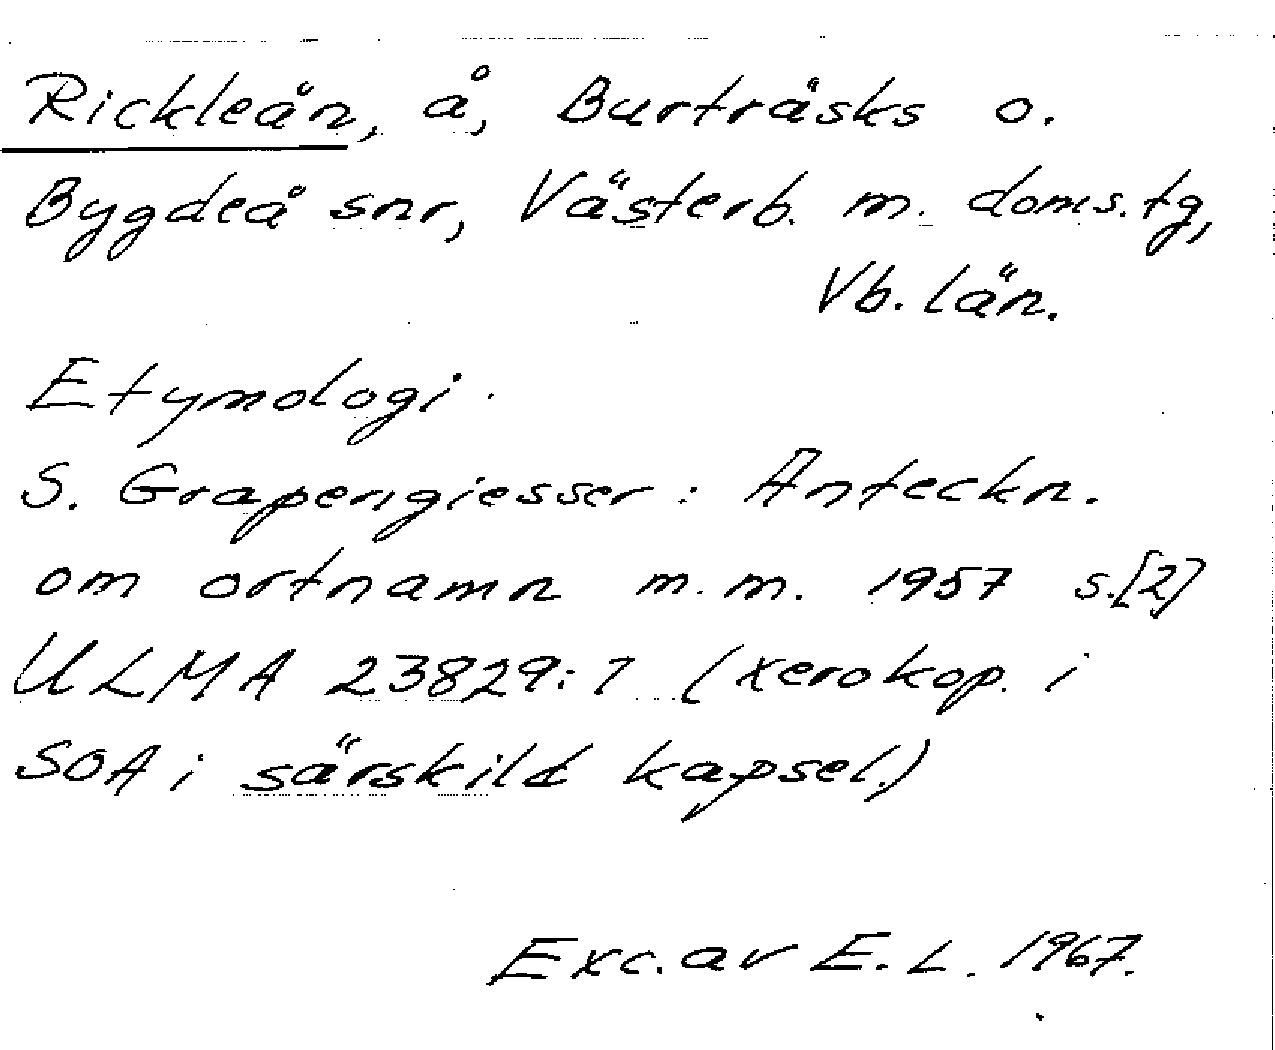 Rickleån, å, Burträsks o.
Bygdeå snr, Västerb. m. doms.tg,
Vb. län.
Etymologi.
S. Grapengiesser: Anteckn.
om ortnamn m.m. 1957 s.[2]
ULMA 23829:7 (xerokop. i
SOA i särskild kapsel.)
Exc. av E. L. 1967.